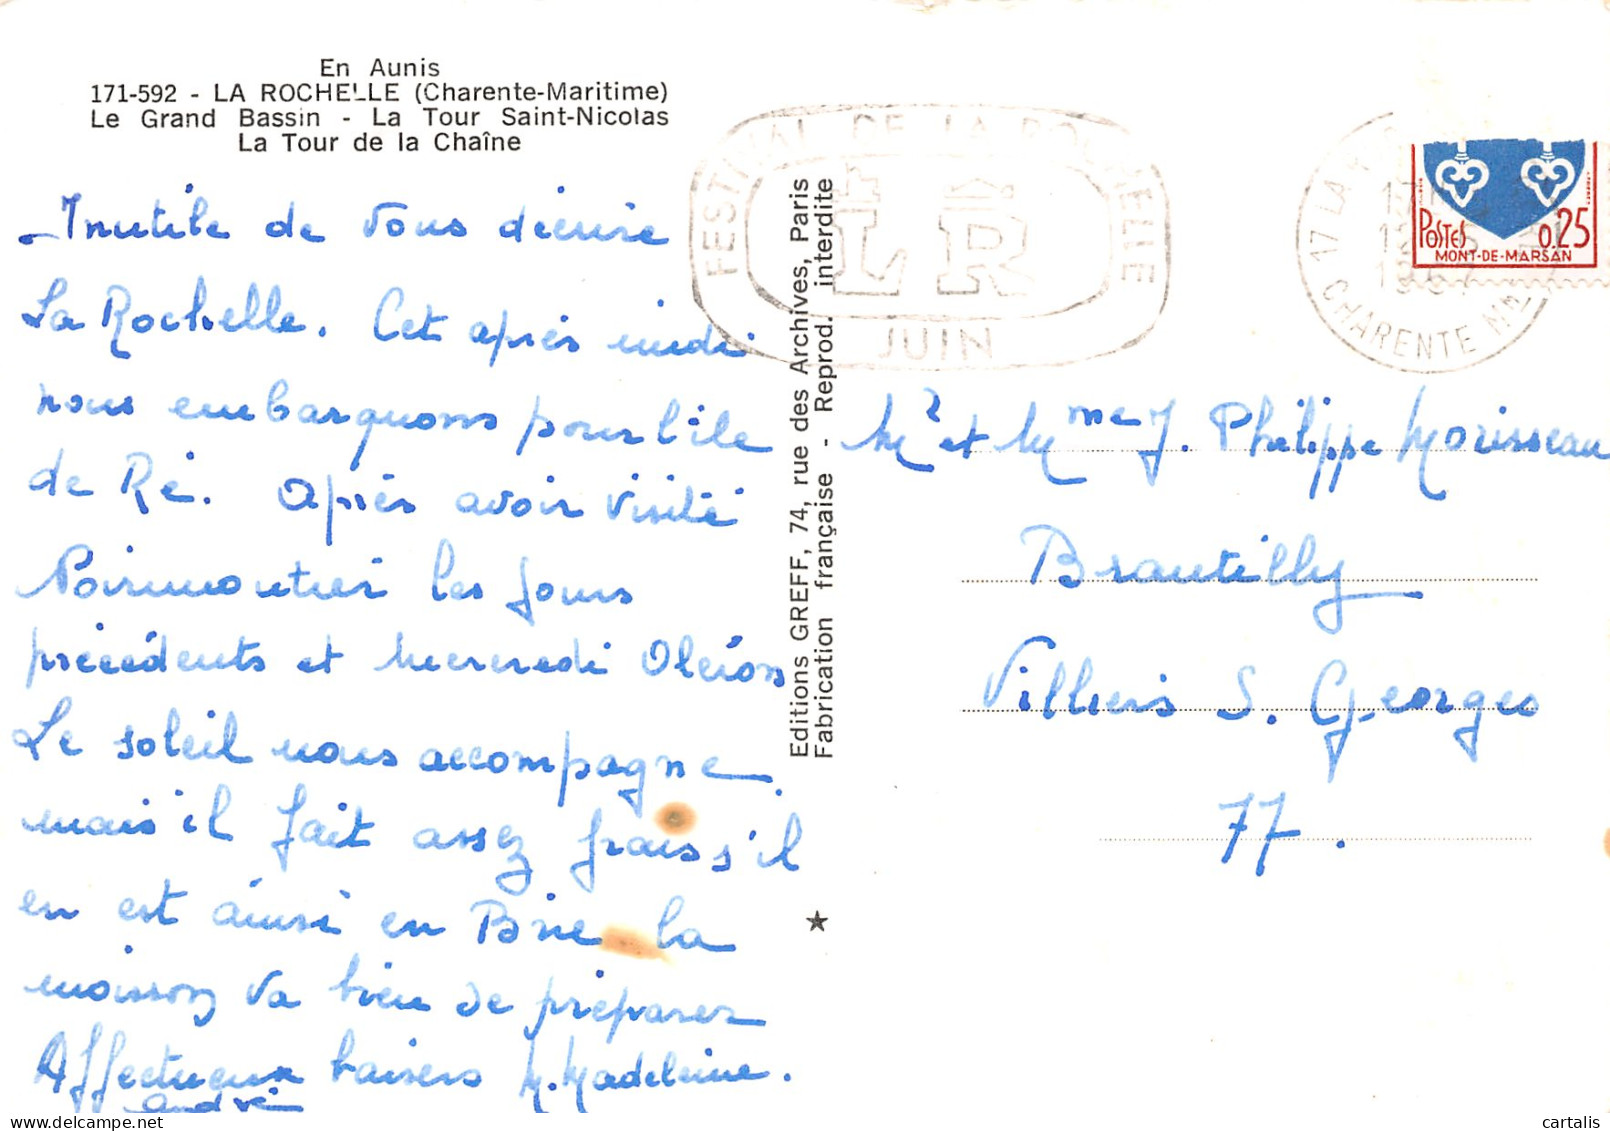 En Aunis
171-592 - LA ROCHELLE (Charente-Maritime)
Le Grand Bassin - La Tour Saint-Nicolas
La Tour de la Chaîne
Inutile de vous décrire
La Rochelle. Cet après midi
nous embarquons pour l'île
de Ré. Après avoir visité
Noirmoutier les jours
précédents et mercredi Oléron
Le soleil nous accompagne
mais il fait assez frais s'il
en est ainsi en Brie la
moisson va bien se préparer
Affectueux baisers M. Madeleine.
André
Editions GREFF, 74, rue des Archives, Paris
Fabrication française - Reprod. interdite
★
FESTIVAL DE LA ROCHELLE
LR
JUIN
17 LA
CHARENTE MME
POSTES 0.25
MONT-DE-MARSAN
Mr et Mme J. Philippe Morisseau
Brautilly
Villiers S. Georges
77.
delcampe.net
cartalis